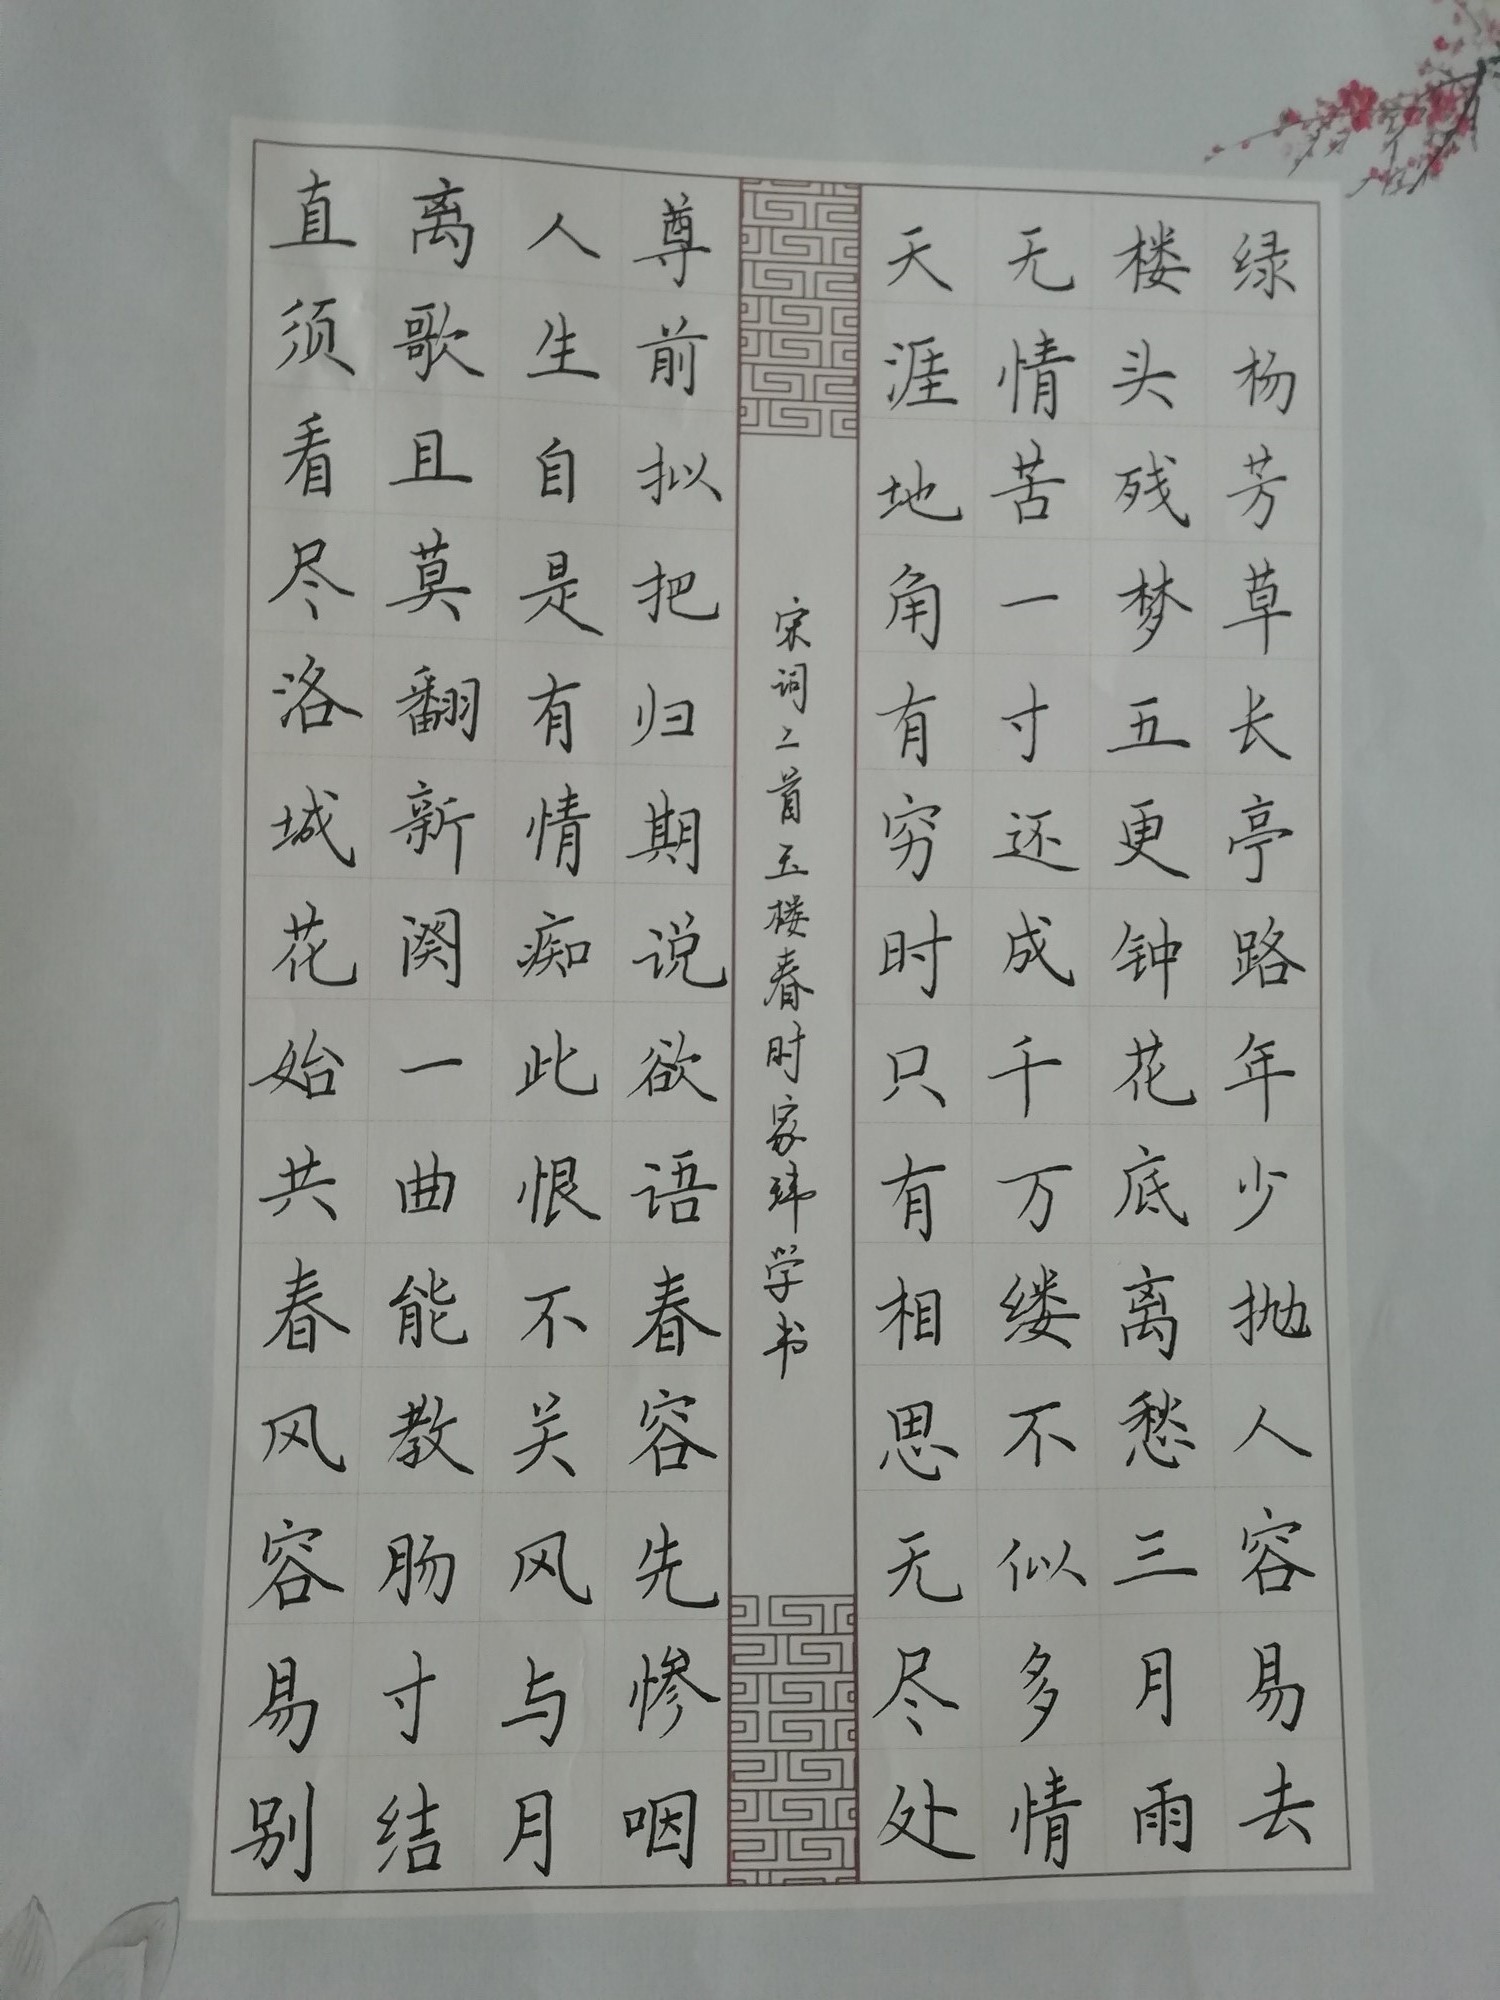 绿杨芳草长亭路年少抛人容易去
楼头残梦五更钟花底离愁三月雨
无情苦一寸还成千万缕不似多情
天涯地角有穷时只有相思无尽处
宋词二首玉楼春时家玮学书
尊前拟把归期说欲语春容先惨咽
人生自是有情痴此恨不关风与月
离歌且莫翻新阕一曲能教肠寸结
直须看尽洛城花始共春风容易别